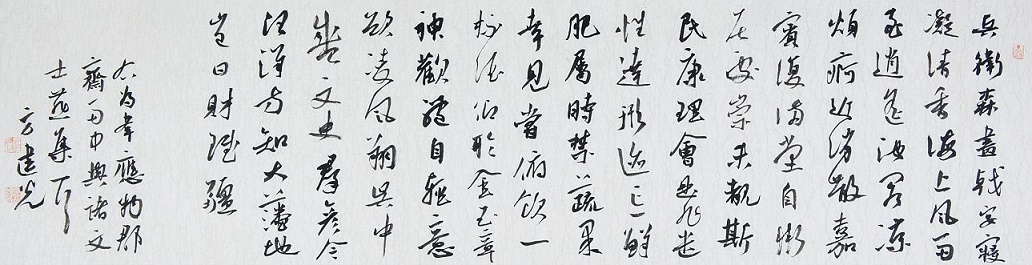 兵衛森畫戟宴寢
凝清香海上風雨
至逍遙池閣涼
煩疴近消散嘉
賓復滿堂自慚
居處崇未覩斯
民康理會是非遣
性達形迹忘鮮
肥屬時禁蔬果
幸見嘗俯飲一
杯酒仰聆金玉章
神歡體自輕意
欲凌風翔吳中
盛文史群彥今
汪洋方知大藩地
豈曰財賦疆
右為韋應物郡
齋雨中與諸文
士燕集
方建光